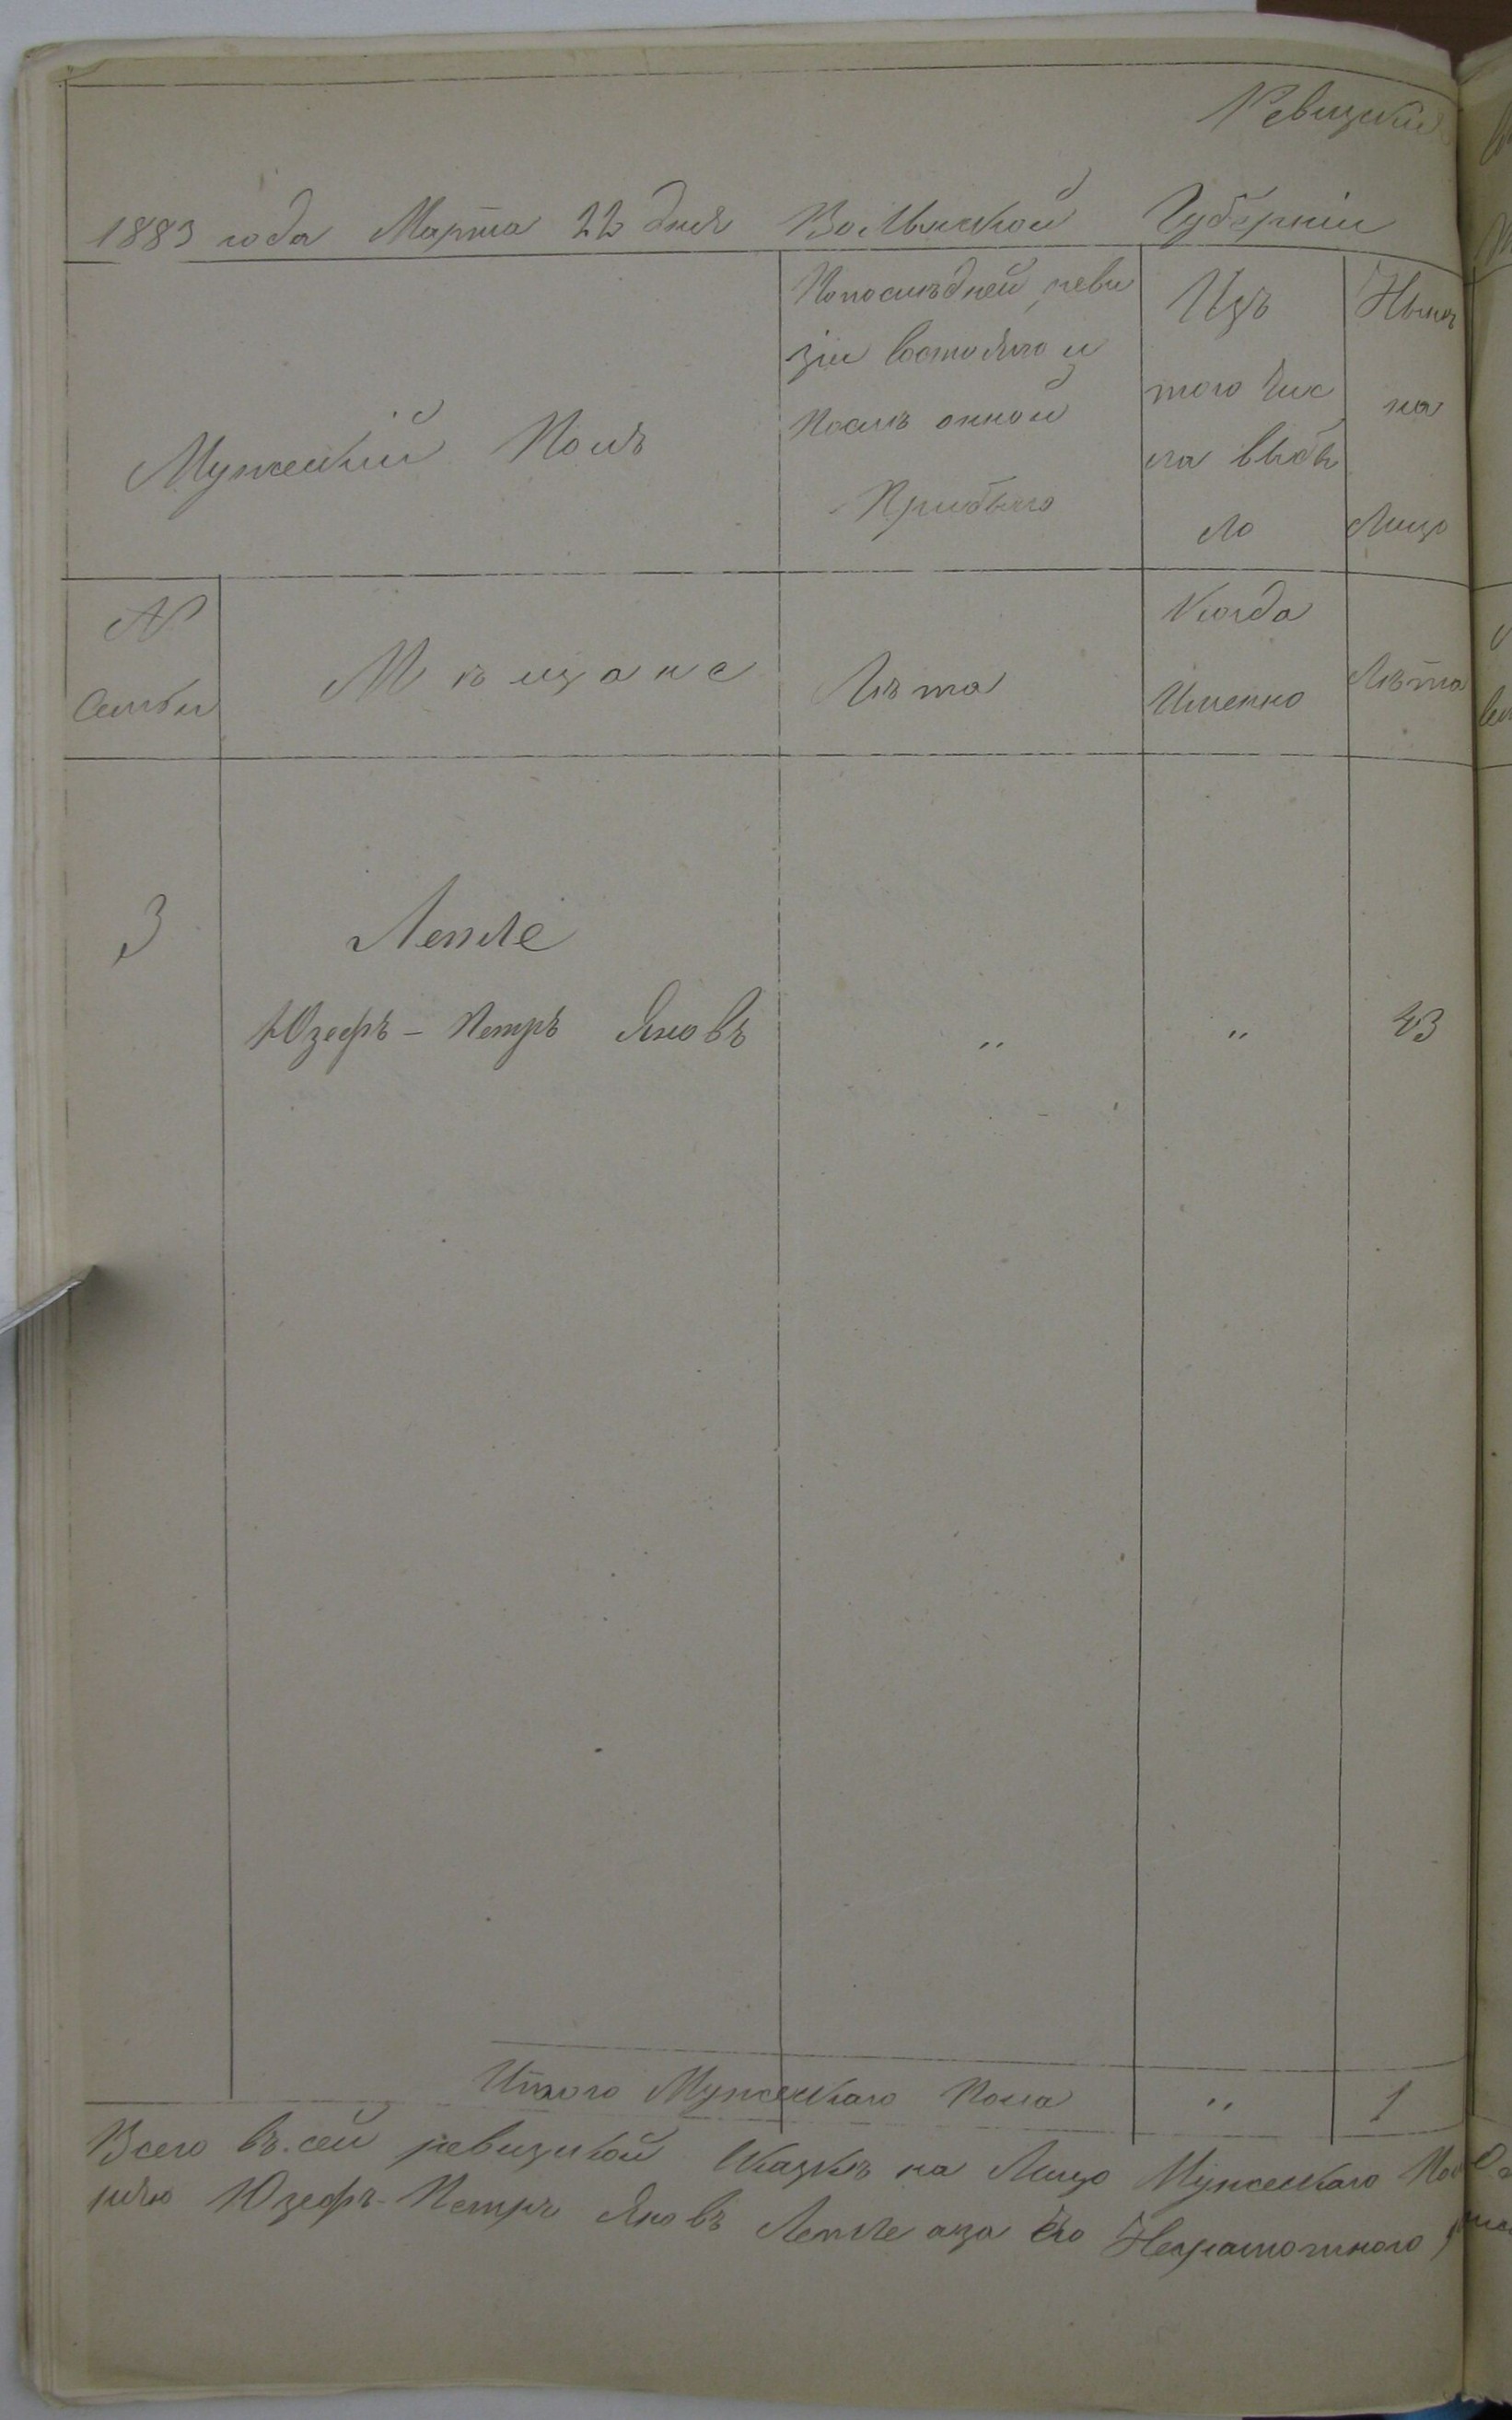 Ревизкий
1883 года Марта 22 дня Волынской Губерніи
Мужескій Полъ
Попослѣдней реви
зіи состояло и
Послѣ онной
Прибыло
Изъ
того Чис
ла выбы
ло
Нынѣ
на
Лицо
№
Семьи
Мѣщане
Лѣта
Когда
Именно
Лѣта
3
Лемле
Юзефъ - Петръ Яковъ
"
"
43
Итого Мужескаго Пола " 1
Всего въ сей ревизской Сказкѣ на Лицо Мужескаго Пол
Юзефъ-Петръ Яковъ Лемле аза его Неграмотного